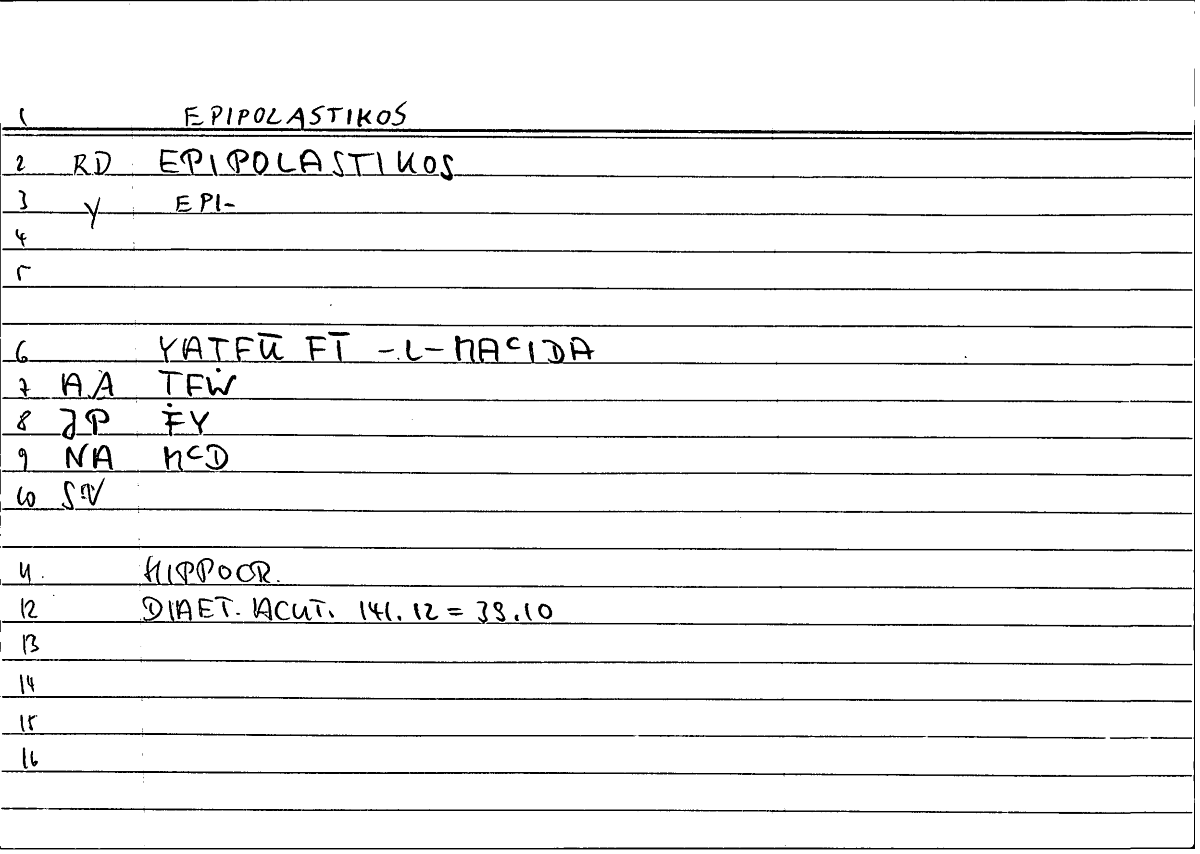 1 EPIPOLASTIKOS
2 RD EPIPOLASTIKOS
3 Y EPI-
4
5
6 YATFŪ FĪ -L-MAᶜIDA
7 AA TFẆ
8 JP ḞY
9 NA MᶜD
10
11. HIPPOCR.
12 DIAET. ACUT. 141.12 = 39.10
13
14
15
16